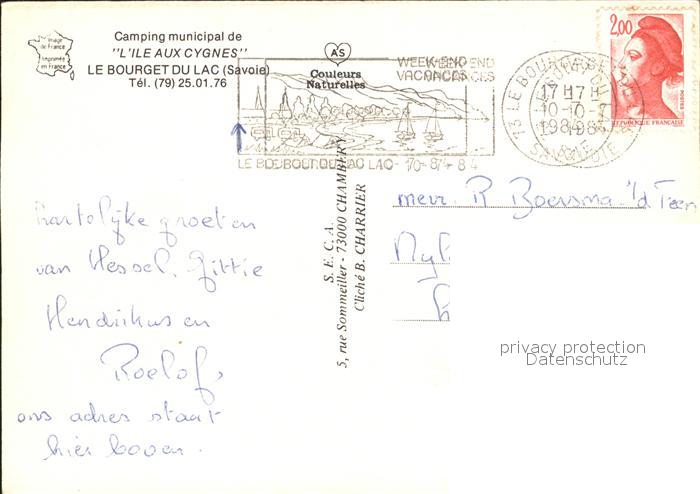 Image
de France
Imprimée
en France
Camping municipal de
"L'ILE AUX CYGNES"
LE BOURGET DU LAC (Savoie)
Tél. (79) 25.01.76
AS
Couleurs
Naturelles
WEEK-END
VACANCES
LE BOURGET
17 H
10-7
1984
SAVOIE
2,00
REPUBLIQUE FRANÇAISE
S. E. C. A.
5, rue Sommeiller - 73000 CHAMBERY
Cliché B. CHARRIER
hartelijke groeten
van Hessel, Gittie
Hendrikus en
Roelof,
ons adres staat
hier boven.
mevr. R Boersma-v/d Feen
privacy protection
Datenschutz